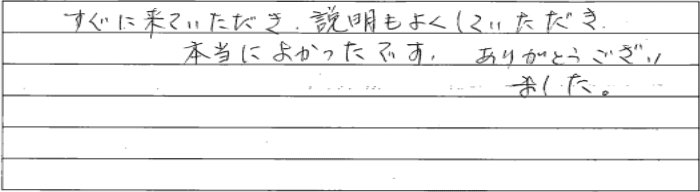 すぐに来ていただき、説明もよくしていただき、
本当によかったです。ありがとうござい
ました。